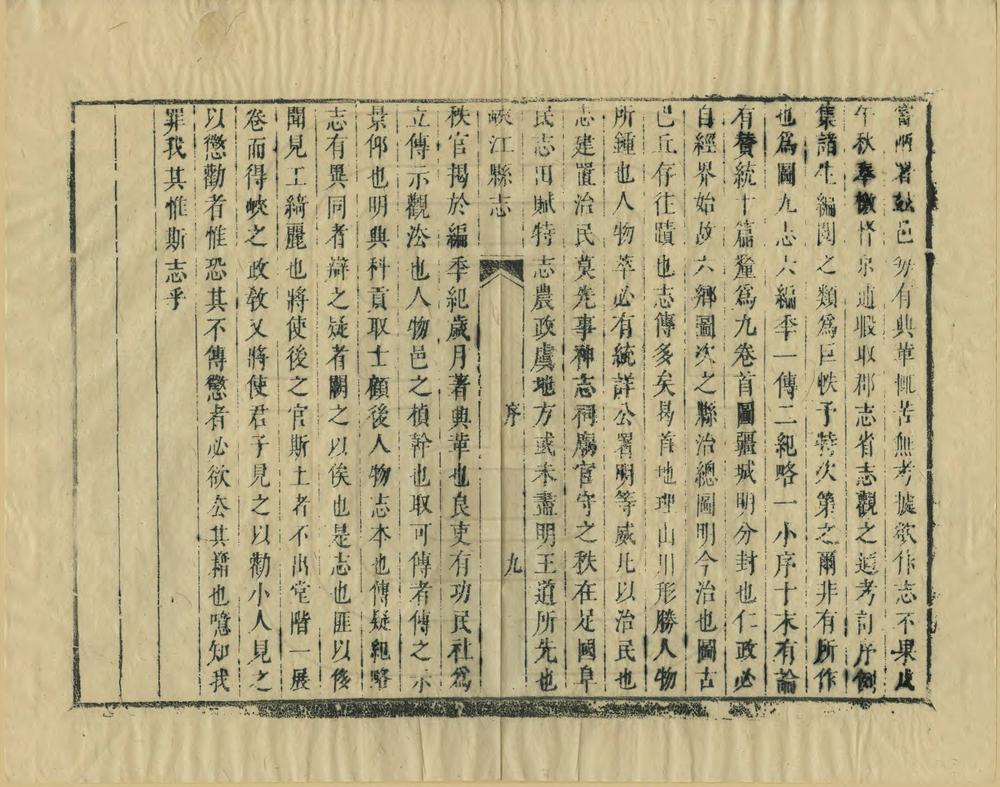 嘗兩署玆邑每有典革慨苦無考據欲作志不果戊
午秋奉檄怍示逋暇取郡志省志觀之遂考訂序例
集諸生編閱之類爲巨帙予特次第之爾非有所作
也爲圖九志六編季一傳二紀略一小序十末有論
有贊統十篇釐爲九卷首圖疆域明分封也仁政必
自經界始故六鄉圖次之縣治總圖明今治也圖古
巴丘存往蹟也志傳多矣曷首地理山川形勝人物
所鍾也人物萃必有統詳公署明等威此以治民也
志建置治民莫先事神志祠廟官守之秩在足國阜
民志田賦特志農政虞地方或未盡明王道所先也
峽江縣志
序
九
秩官揭於編季紀歲月著典革也良吏有功民社爲
立傳示觀法也人物邑之楨幹也取可傳者傳之示
景仰也明典科貢取士顧後人物志本也傳疑紀略
志有異同者辯之疑者闕之以俟也是志也匪以侈
聞見工綺麗也將使後之官斯土者不出堂階一展
卷而得峽之政敎又將使君子見之以勸小人見之
以懲勸者惟恐其不傳懲者必欲去其籍也噫知我
罪我其惟斯志乎